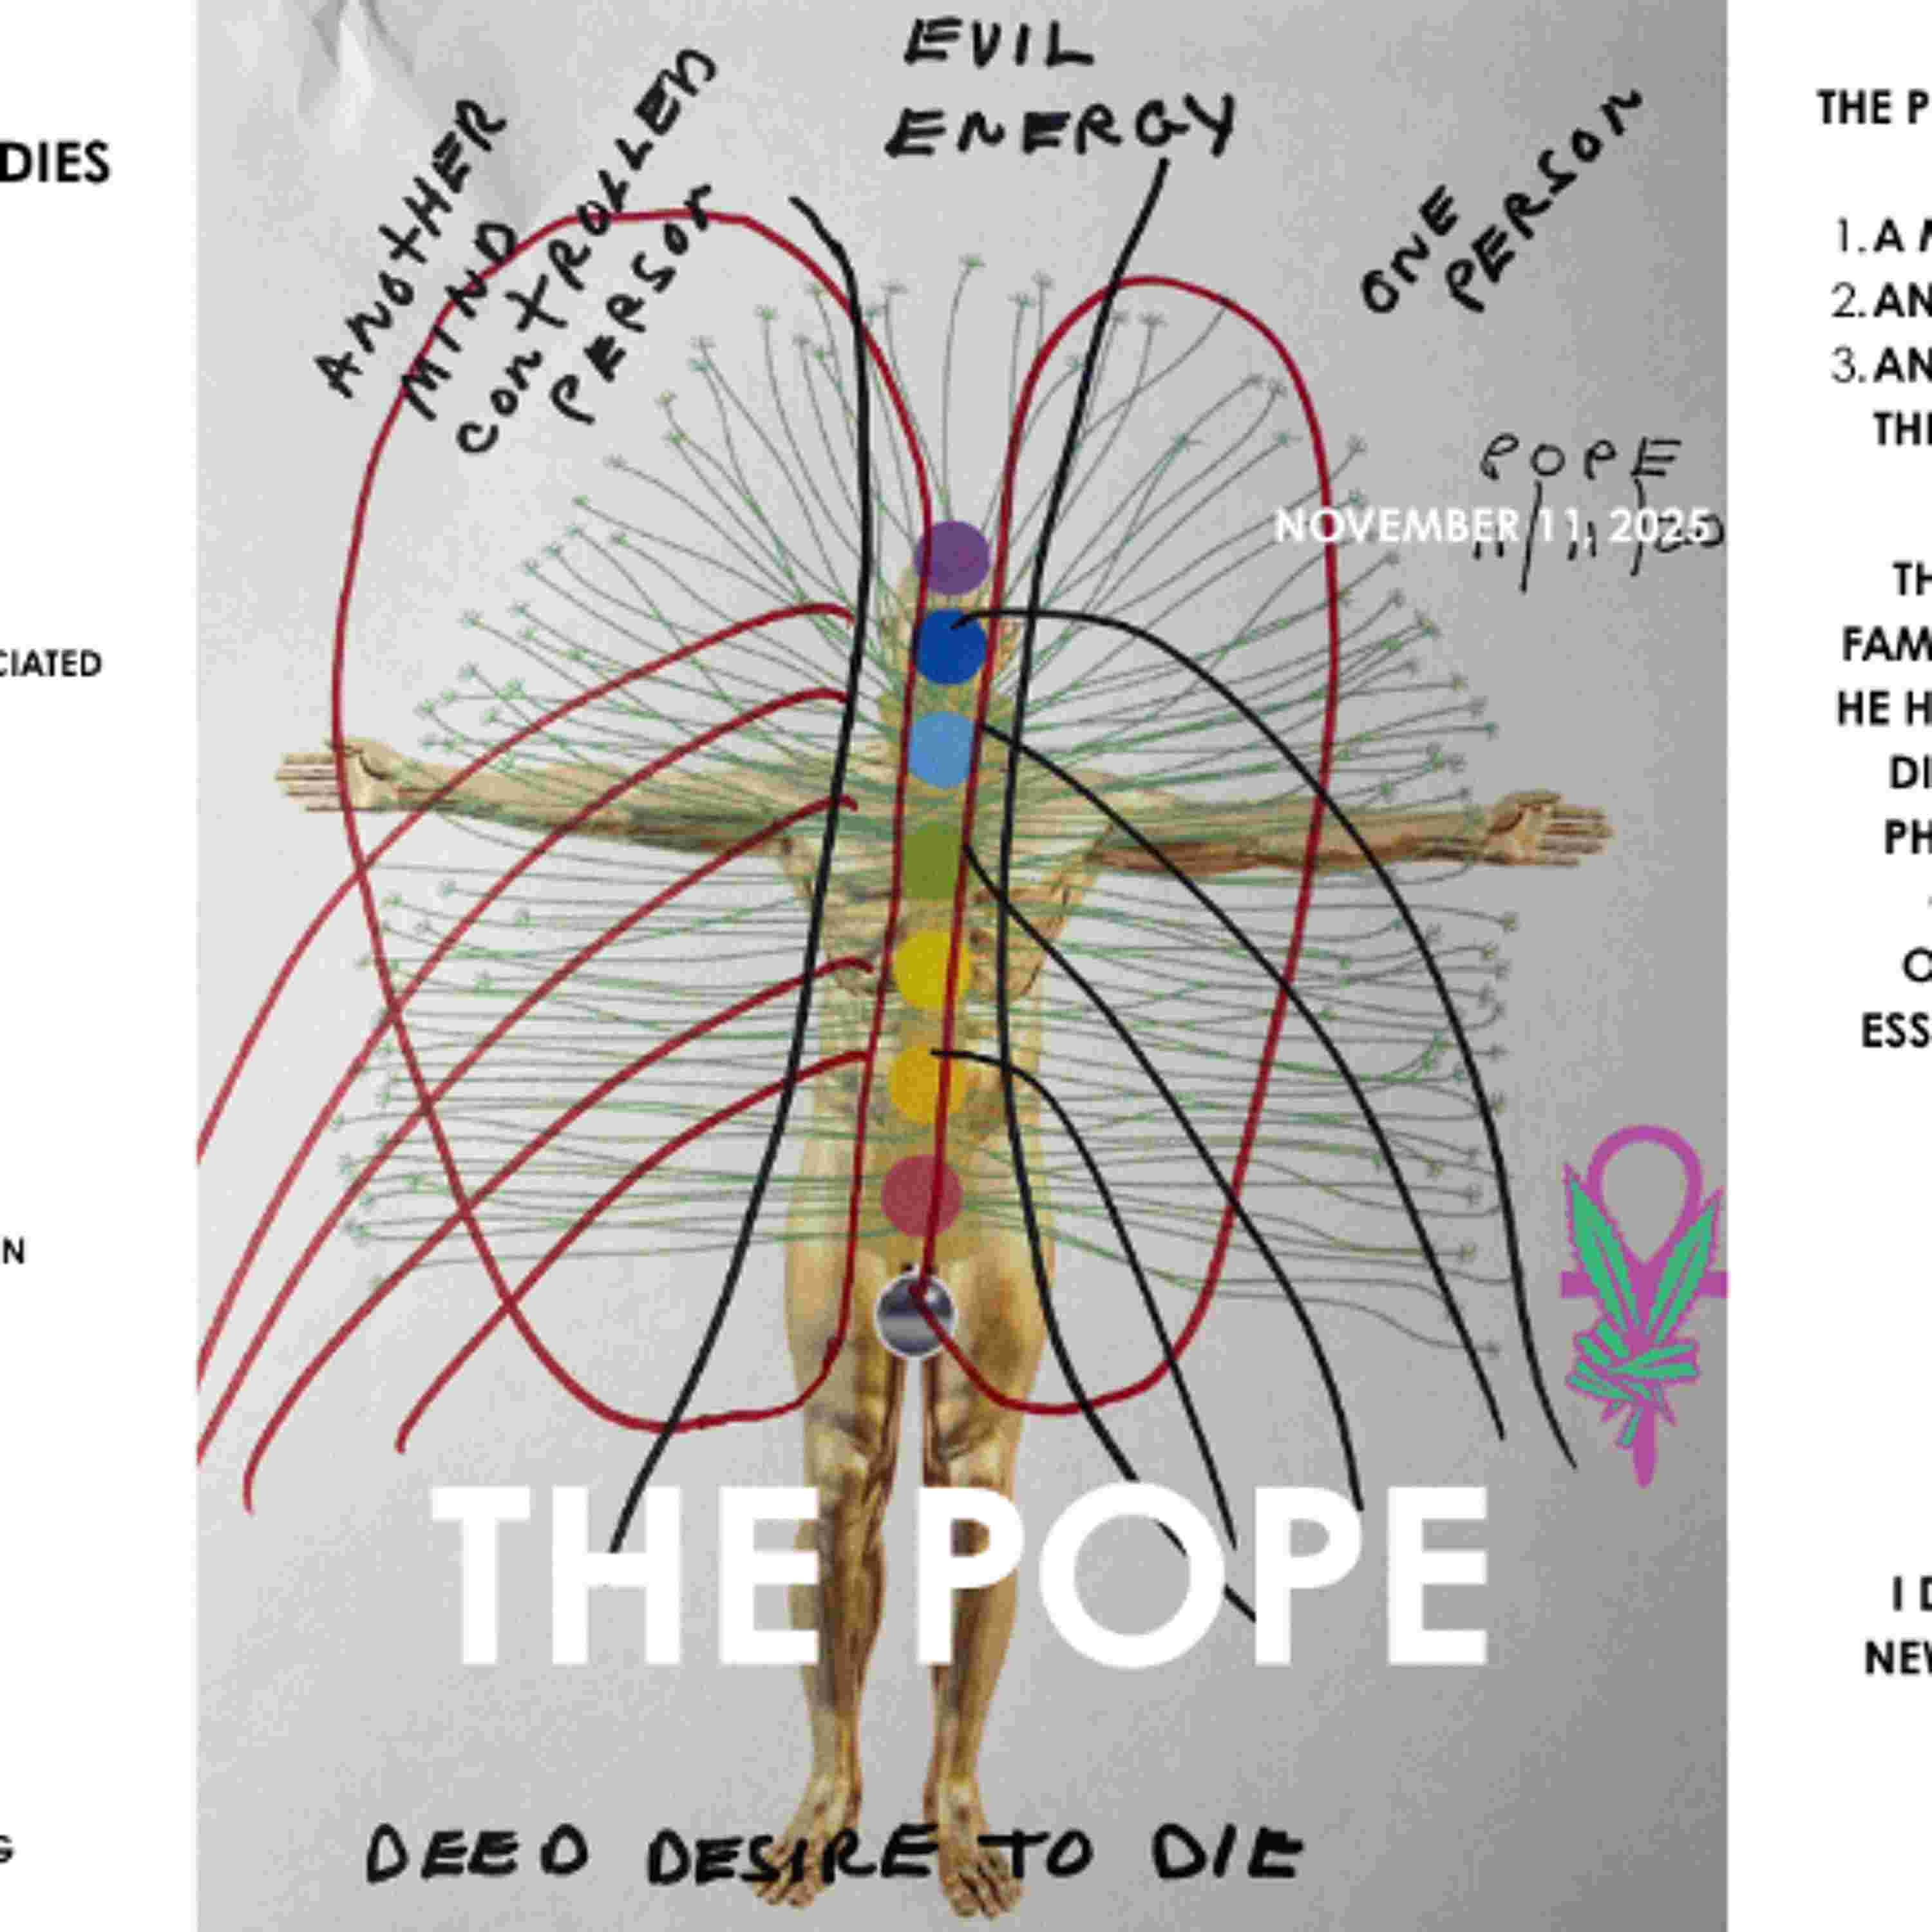 DIES
CIATED
N
G
EVIL
ENERGY
ANOTHER
MIND
CONTROLLED
PERSON
ONE
PERSON
POPE
11/11/25
NOVEMBER 11, 2025
THE POPE
DEED DESIRE TO DIE
THE P
1. A M
2. AN
3. AN
THE
TH
FAM
HE H
DI
PH
O
ESS
I D
NEW